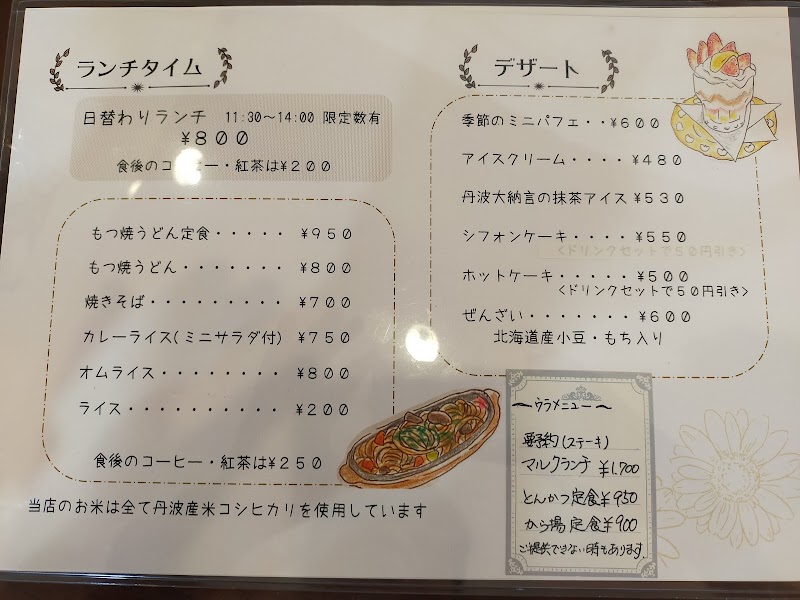 ランチタイム
日替わりランチ 11:30~14:00 限定数有
¥800
食後のコーヒー・紅茶は¥200
もつ焼うどん定食・・・・・ ¥950
もつ焼うどん・・・・・・・ ¥800
焼きそば・・・・・・・・・ ¥700
カレーライス(ミニサラダ付) ¥750
オムライス・・・・・・・・ ¥800
ライス・・・・・・・・・・ ¥200
食後のコーヒー・紅茶は¥250
当店のお米は全て丹波産米コシヒカリを使用しています
デザート
季節のミニパフェ・・¥600
アイスクリーム・・・・¥480
丹波大納言の抹茶アイス¥530
シフォンケーキ・・・・¥550
<ドリンクセットで50円引き>
ホットケーキ・・・・・¥500
<ドリンクセットで50円引き>
ぜんざい・・・・・・・¥600
北海道産小豆・もち入り
~ウラメニュー~
要予約(ステーキ)
マルクランチ ¥1,700
とんかつ定食¥950
から揚定食¥900
ご提供できない時もあります。